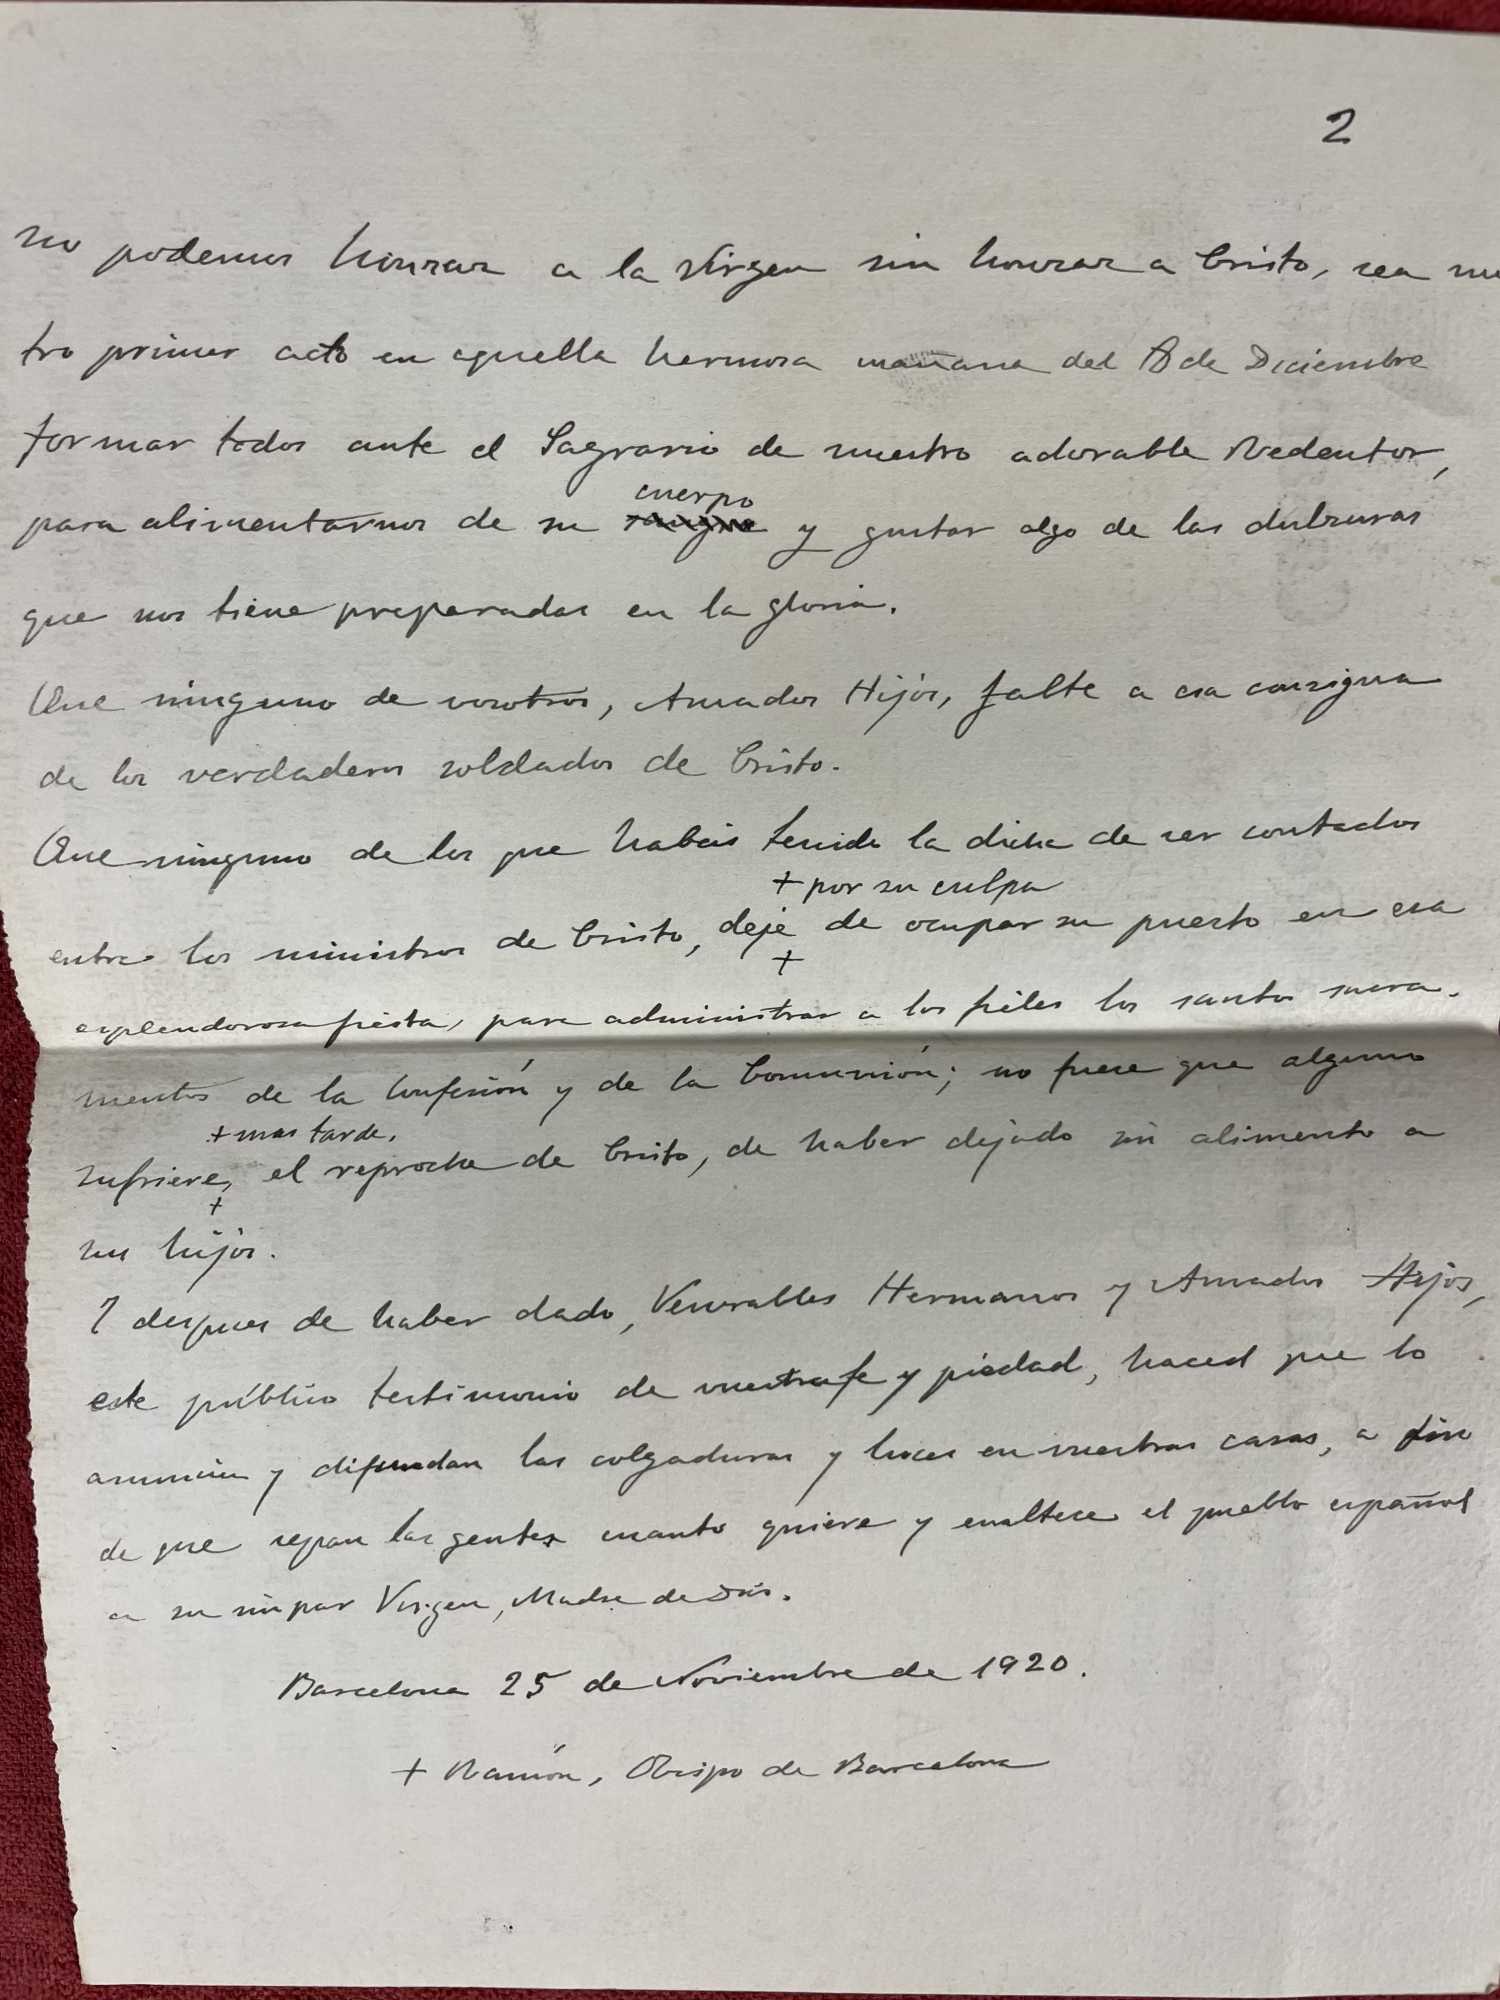 2
no podemos honrar a la Virgen sin honrar a Cristo, sea nu
tro primer acto en aquella hermosa mañana del 8 de Diciembre
formar todos ante el Sagrario de nuestro adorable Redentor,
cuerpo
para alimentarnos de su sangre y gustar algo de las dulzuras
que nos tiene preparadas en la gloria.
Que ninguno de vosotros, Amados Hijos, falte a esa consigna
de los verdaderos soldados de Cristo.
Que ninguno de los que habeis tenido la dicha de ser contados
+ por su culpa
entre los ministros de Cristo, deje de ocupar su puesto en esa
+
esplendorosa fiesta, para administrar a los fieles los santos sacra-
mentos de la Confesión y de la Comunión; no fuere que alguno
+ mas tarde,
sufriere, el reproche de Cristo, de haber dejado sin alimento a
+
sus hijos.
Y despues de haber dado, Venerables Hermanos y Amados Hijos,
este público testimonio de vuestra fe y piedad, haced que lo
anuncien y difundan las colgaduras y luces en vuestras casas, a fin
de que sepan las gentes cuanto quiere y enaltece el pueblo español
a su sin par Virgen, Madre de Dios.
Barcelona 25 de Noviembre de 1920.
+ Ramón, Obispo de Barcelona